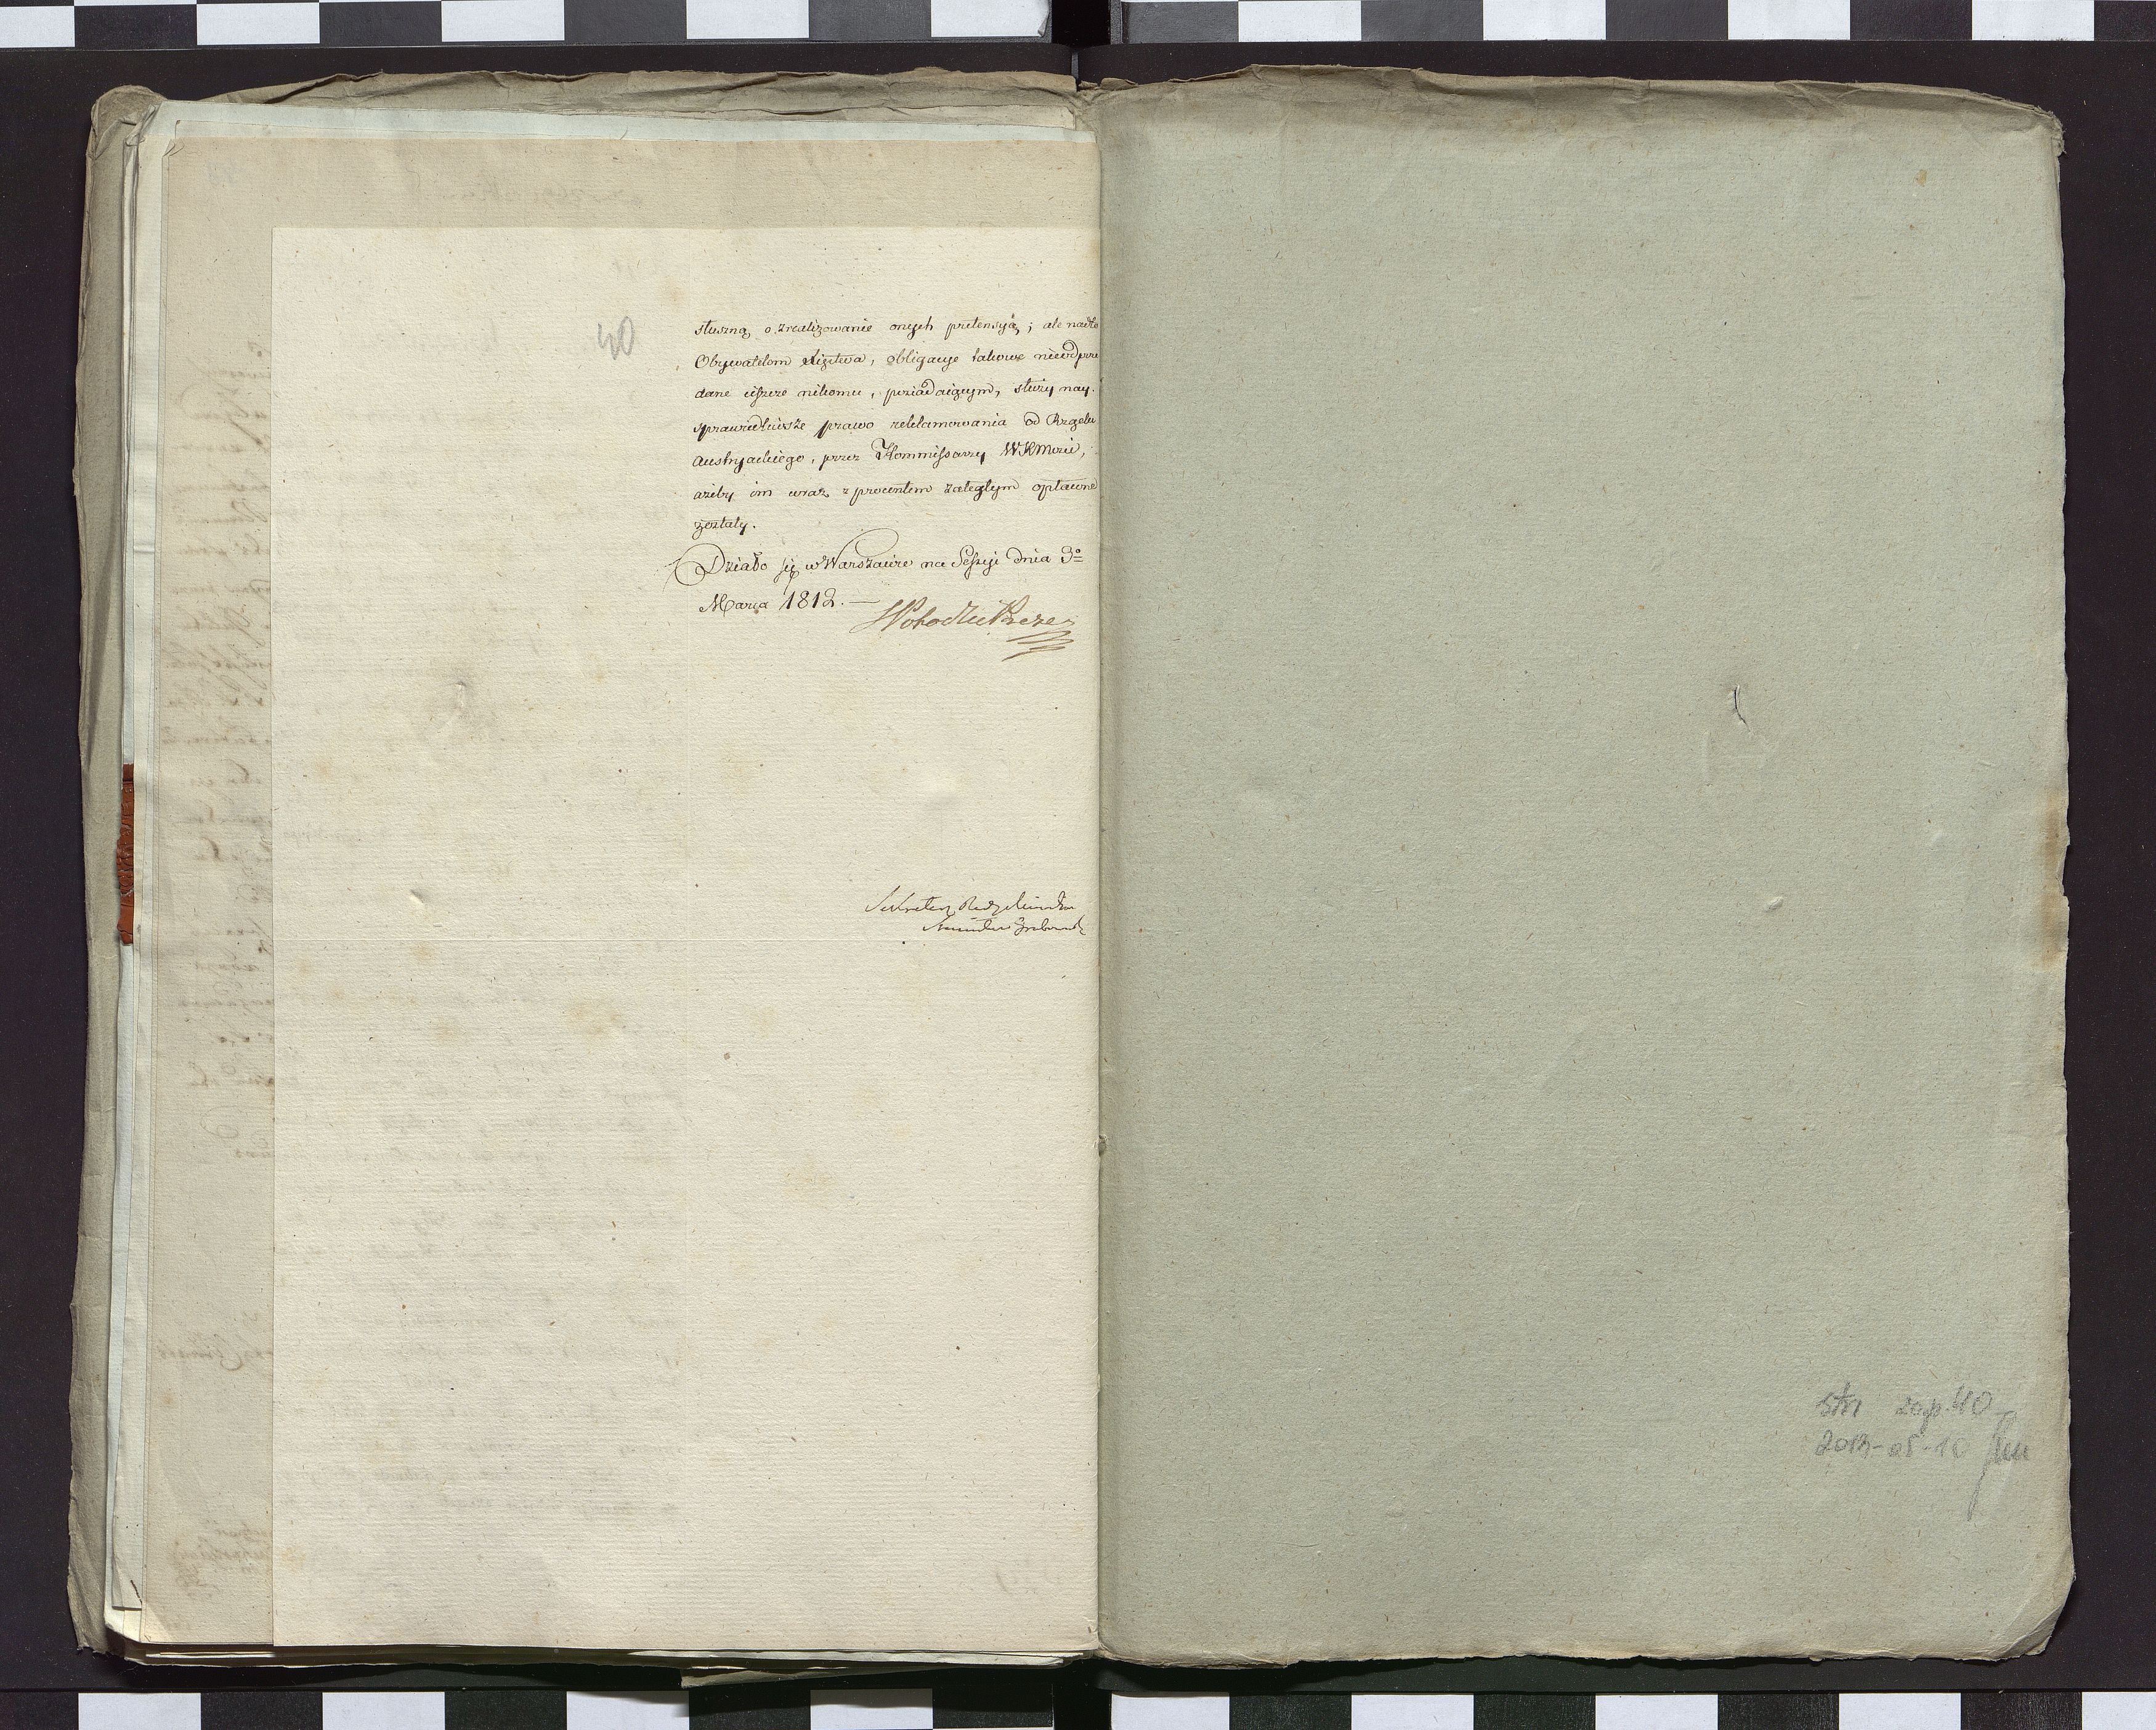 40
słuszną o zrealizowanie onych pretensyą; ale nadto
Obywatelom Xięztwa, obligacye takowe nieodprze
dane ieszcze nikomu, posiadaiącym, służy nay-
sprawiedliwsze prawo reklamowania od Rządu
Austryackiego, przez Kommissarzy WKMości,
ażeby im wraz z procentem zaległym opłacone
zostały.
Działo się w Warszawie na Sessyi dnia 3º
Marca 1812. —
Sekretarz
str. zap. 40
2013-05-10